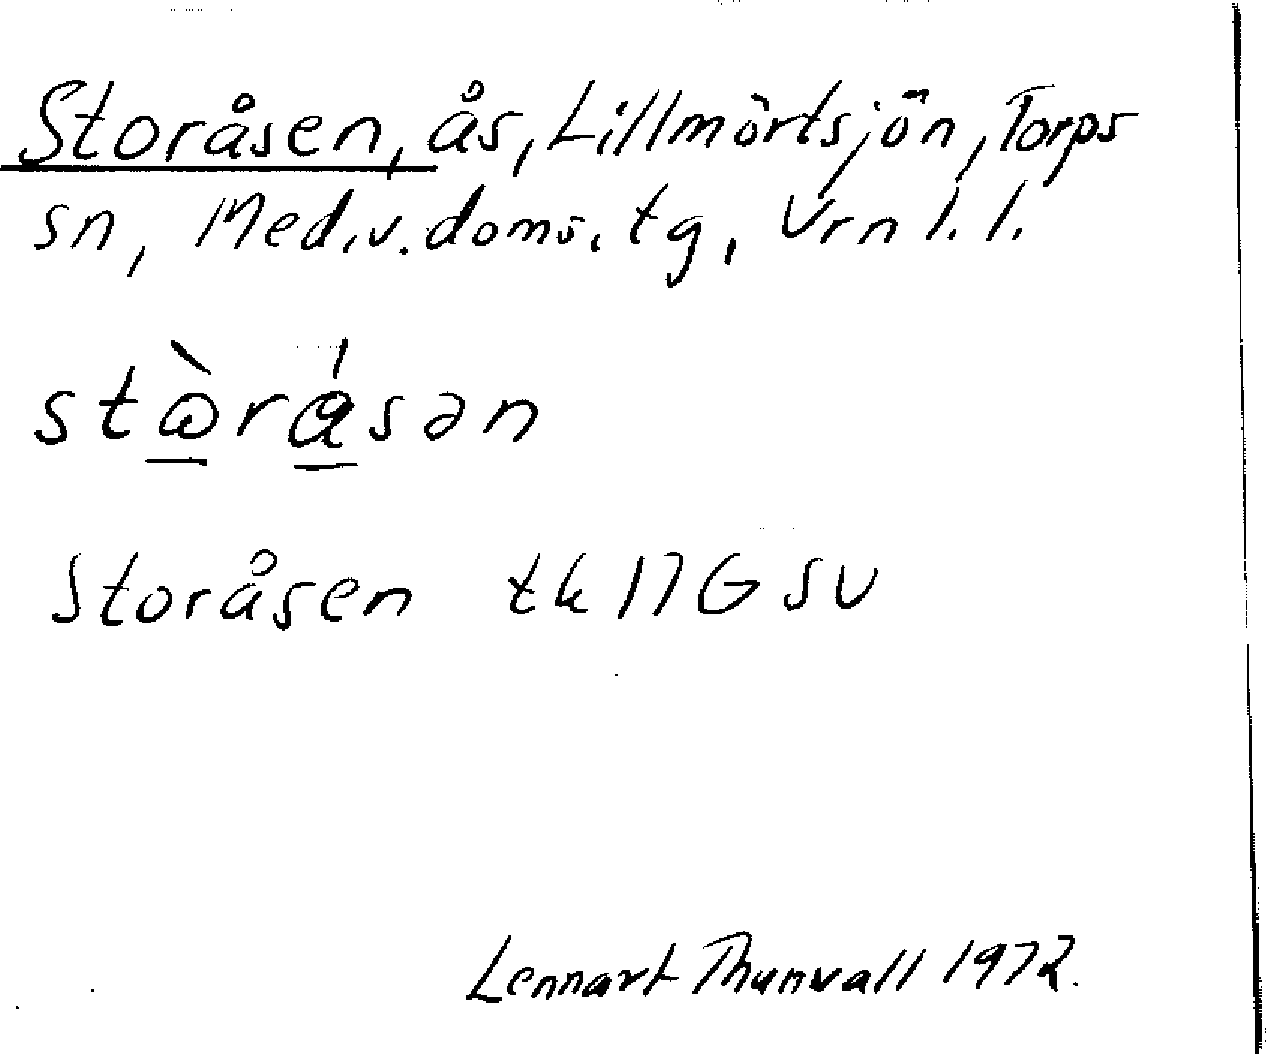 Storåsen, ås, Lillmörtsjön, Torps
sn, Med.v.doms.tg, Vrn l. l.
Storåsen tk 17G SV
Lennart Thunvall 1972.